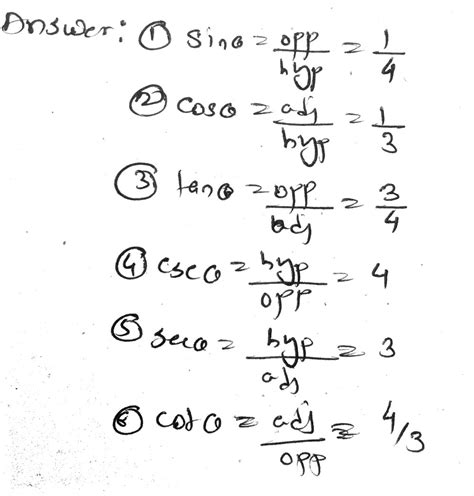 Answer: ① sinθ = opp/hyp = 1/4
② cosθ = adj/hyp = 1/3
③ tanθ = opp/adj = 3/4
④ cscθ = hyp/opp = 4
⑤ secθ = hyp/adj = 3
⑥ cotθ = adj/opp = 4/3